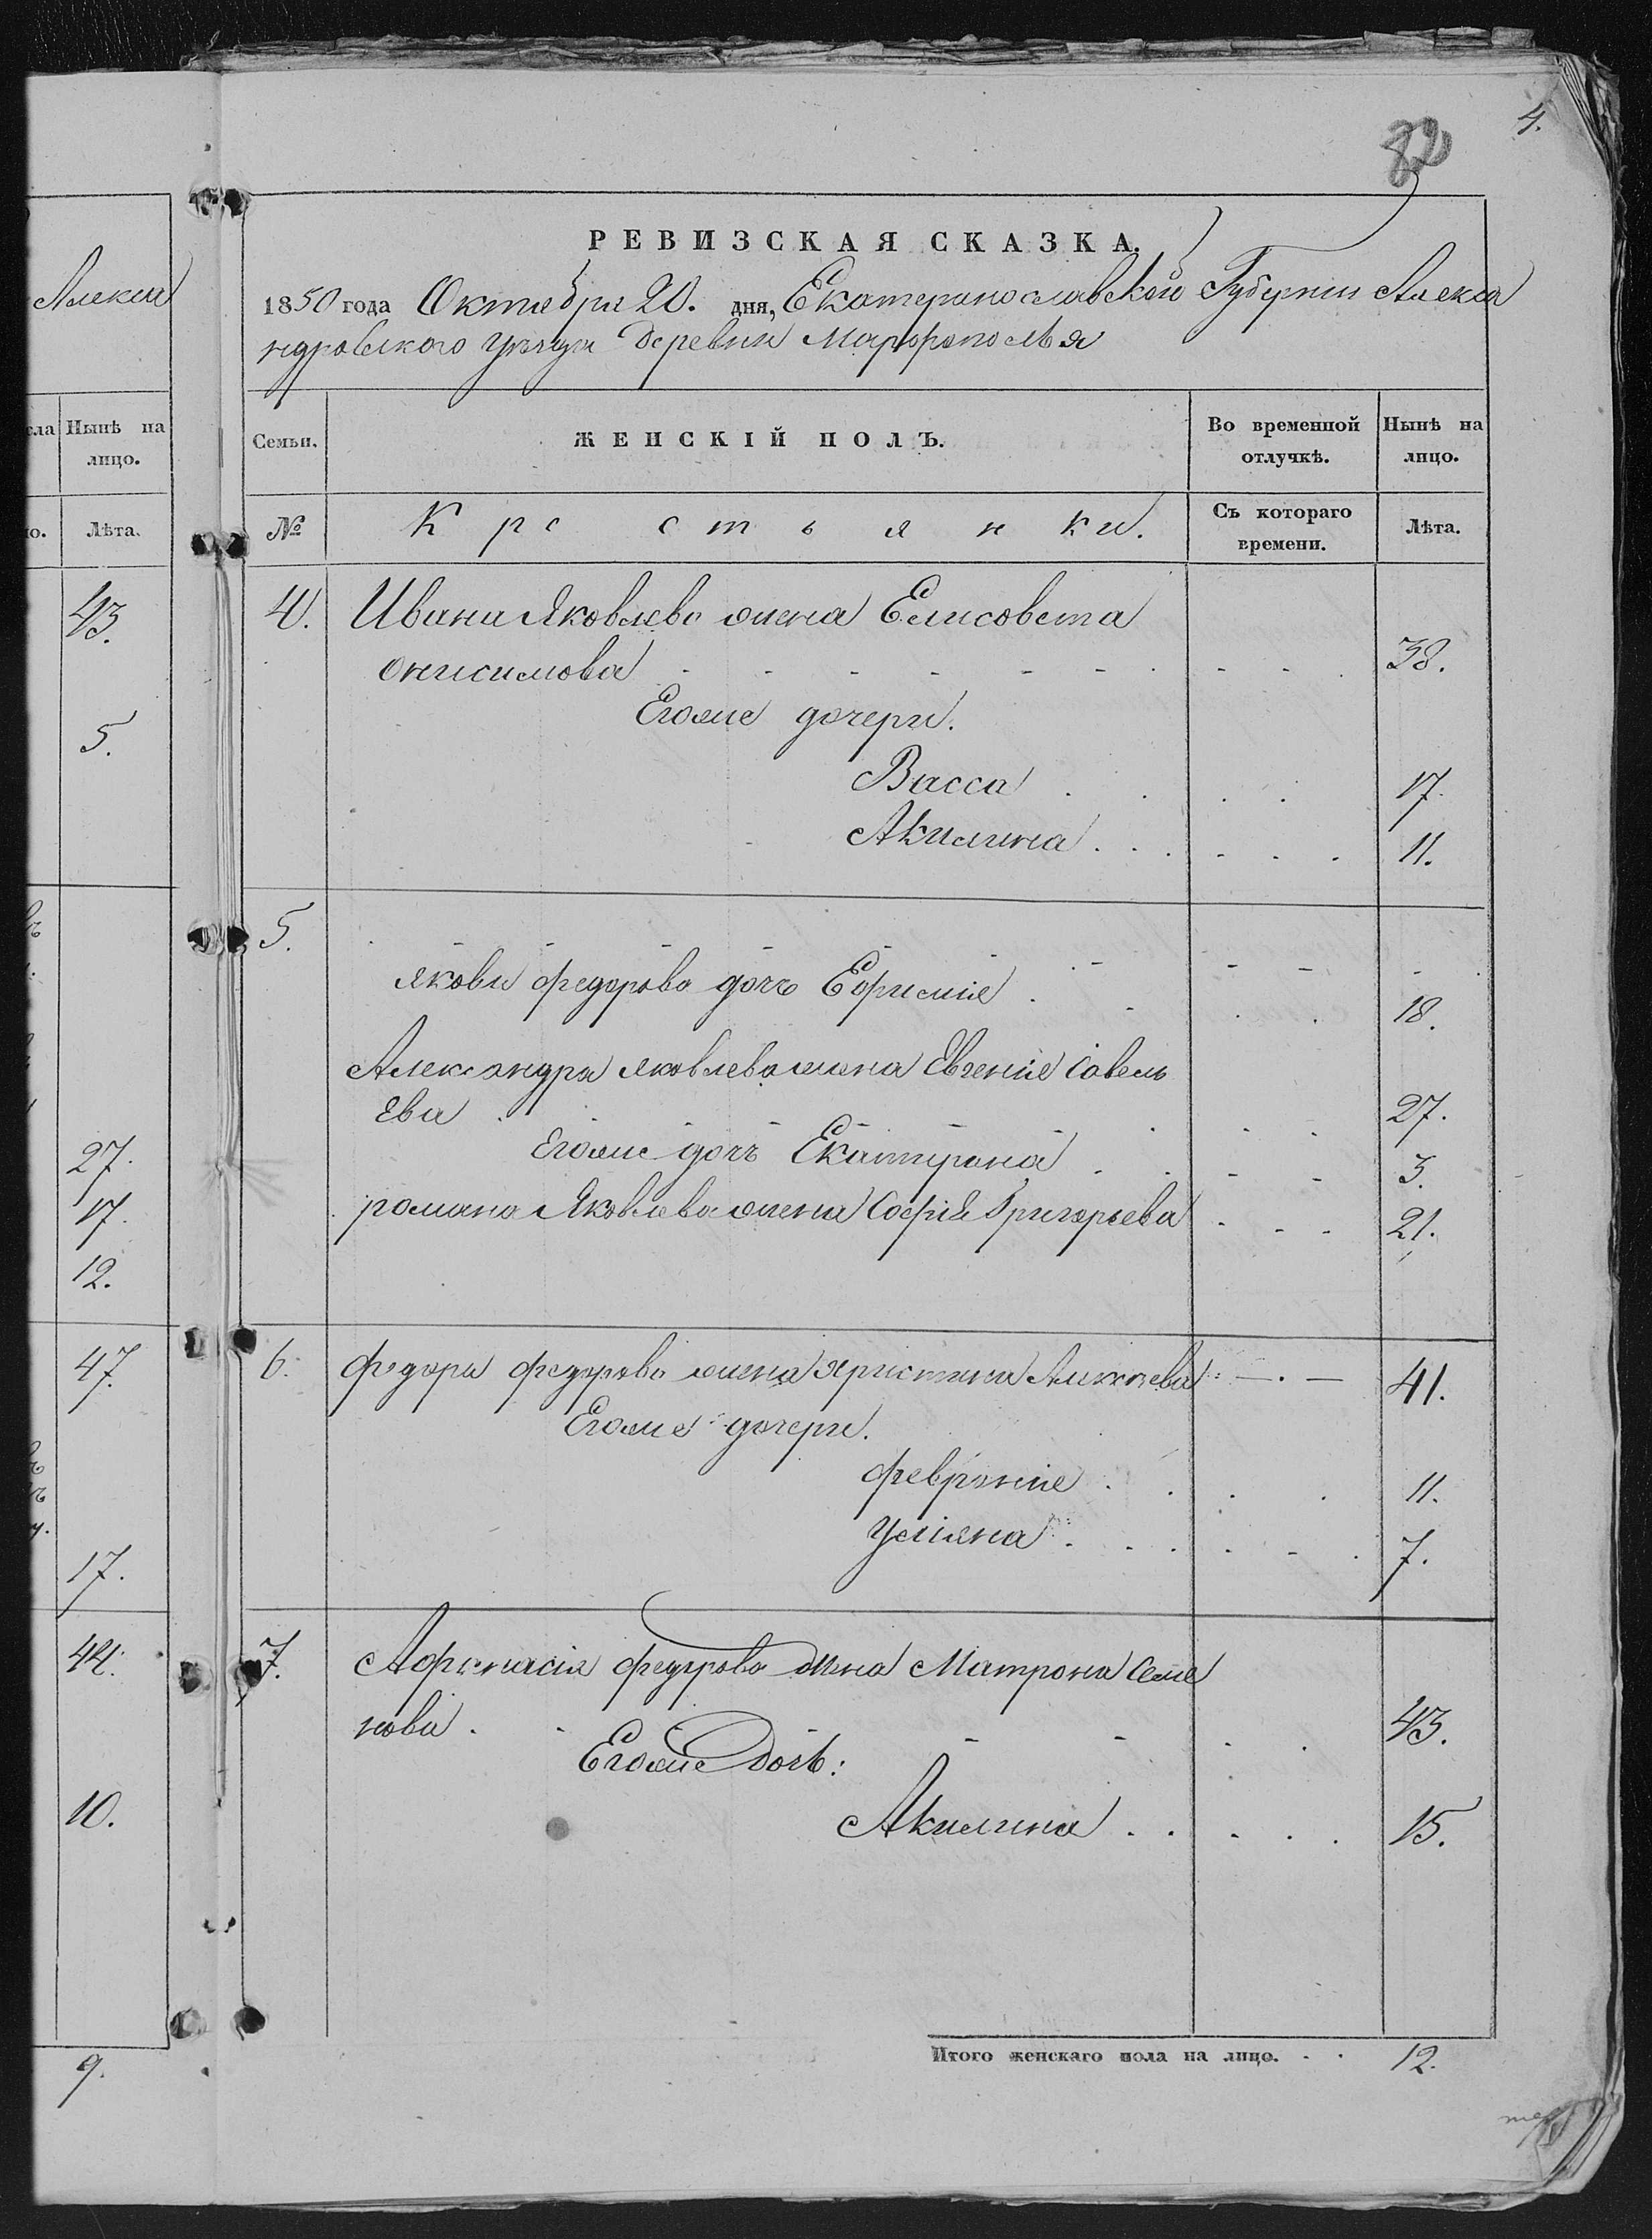 4.
82
РЕВИЗСКАЯ СКАЗКА.
1850 года Октября 20. дня, Екатеринославской Губернии Алекса
ндровского уезда Деревни Марфополья
Семьи.
ЖЕНСКІЙ ПОЛЪ.
Во временной отлучкѣ.
Нынѣ на лицо.
№
Крестьянки.
Съ котораго времени.
Лѣта.
4. Ивана Яковлева жена Елисовета
Онисимова 38.
Егоже дочери.
Васса 17.
Акилина 11.
5.
Якова федорова дочъ Ефимия 18.
Александра Яковлева жена Евгения Савель
Ева 27.
Егоже дочъ Екатерина 3.
романа Яковлева жена Софія Григорьева 21.
6. федора федорова жена христина Алексѣева 41.
Егоже дочери.
феврония 11.
Улияна 7.
7. Афанасія федорова жена Матрона Семе
нова 43.
Егоже Дочь:
Акилина 15.
Итого женскаго пола на лицо. 12.
Алекса
Нынѣ на лицо.
Лѣта.
43.
5.
27.
17.
12.
47.
17.
44.
10.
9.